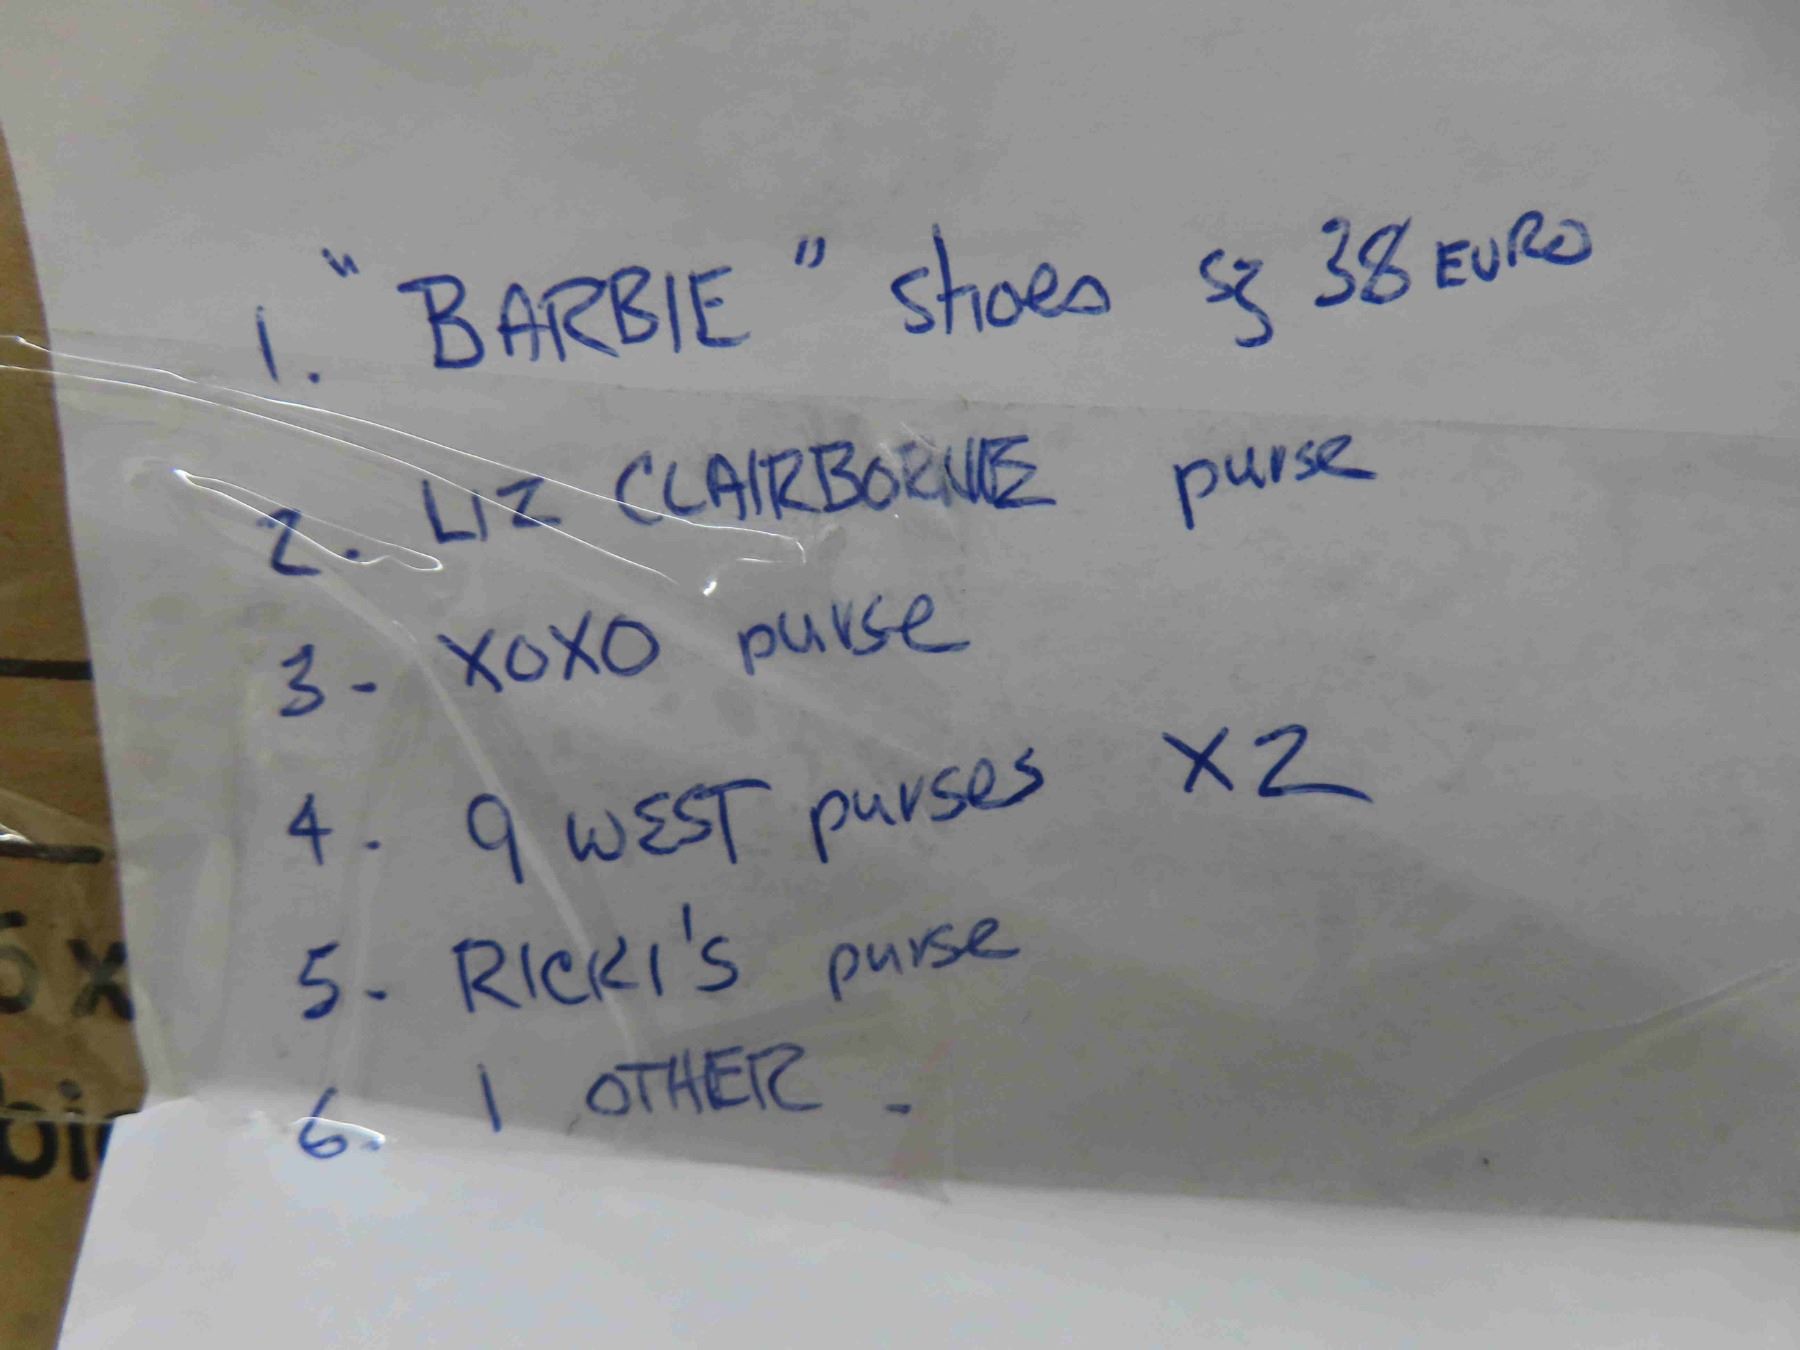 1. "BARBIE" shoes sz 38 EURO
2. LIZ CLAIRBORNE purse
3- XOXO purse
4. 9 WEST purses X2
5- RICKI'S purse
6. 1 OTHER -